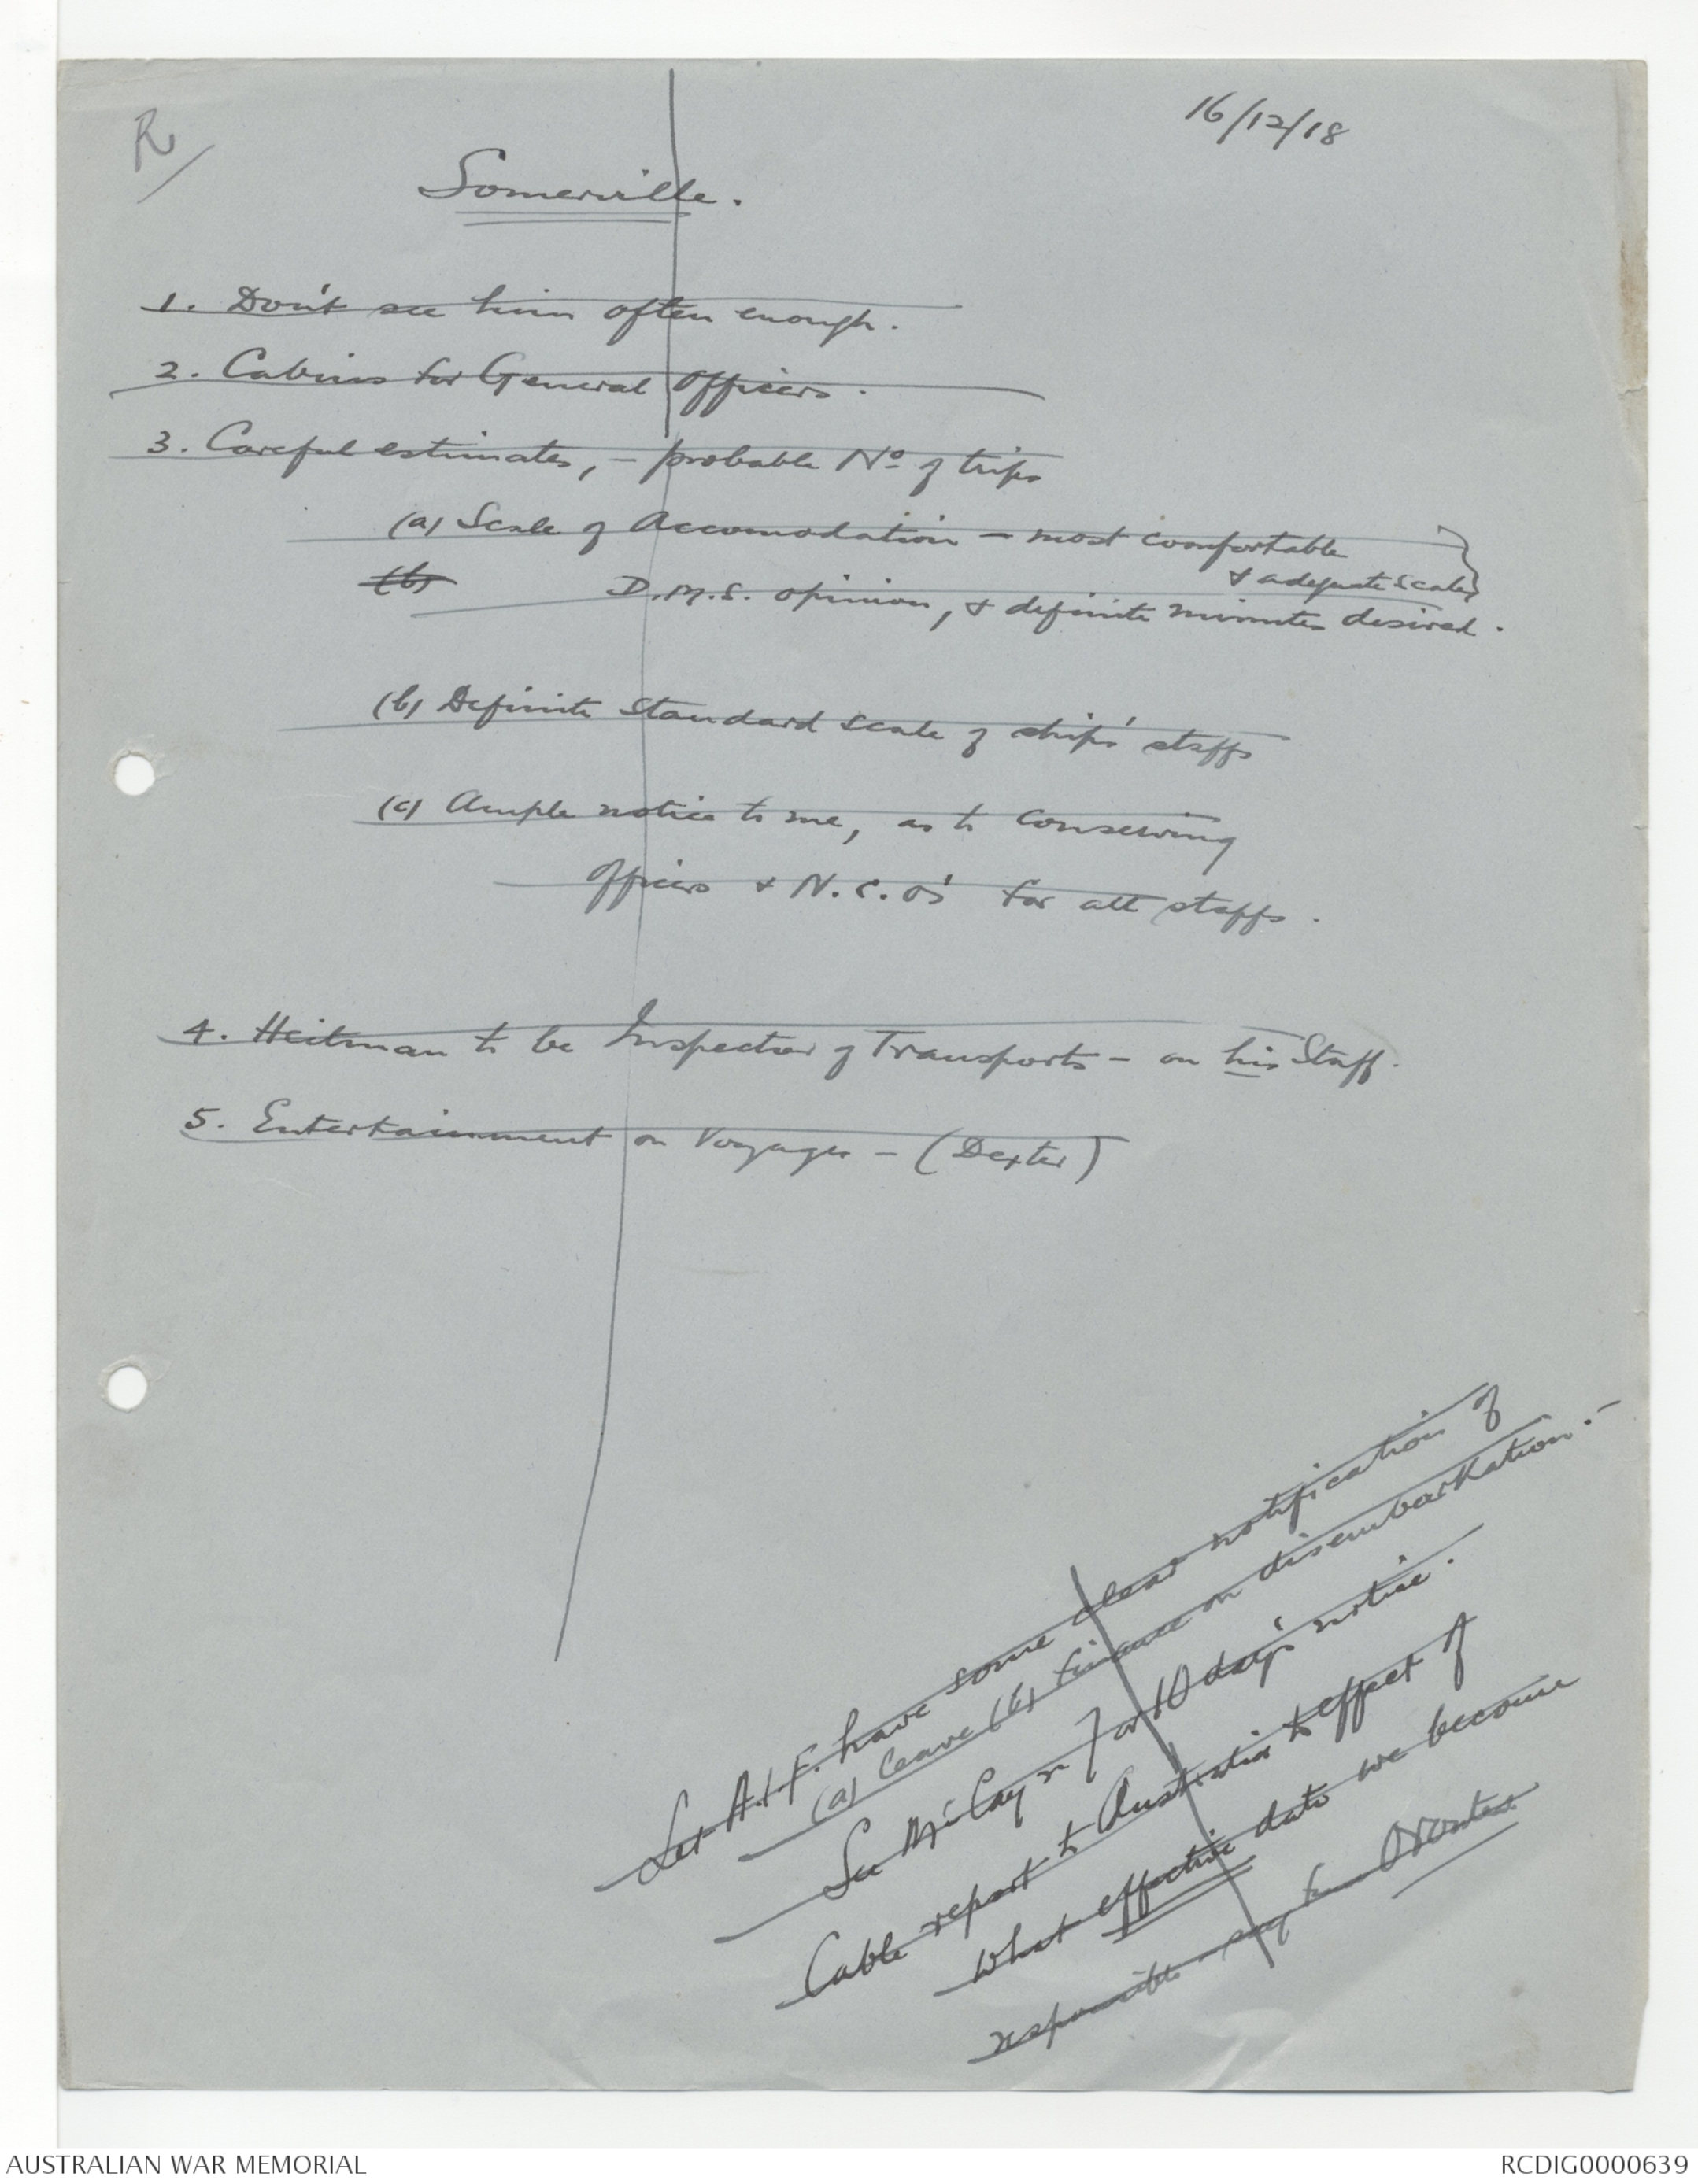 R
16/12/18
Somerville.
1. Don't see him often enough.
2. Cabins for General Officers.
3. Careful estimates, - probable No of trips
(a) Scale of Accomodation - most comfortable
& adequate scale
(b) D.M.S. opinion, & definite minutes desired.
(b) Definite standard scale of ship's staffs
(c) Ample notice to me, as to conserving
Officers & N.C.O's for all staffs.
4. Heitman to be Inspector of Transports - on his Staff.
5. Entertainment on Voyages - (Dexter)
Let A.I.F. have some clear notification of
(a) leave (b) finance on disembarkation. -
See McCay re 7 or 10 day's notice.
Cable report to Australia to effect of
what effective date we become
responsible say from Orontes